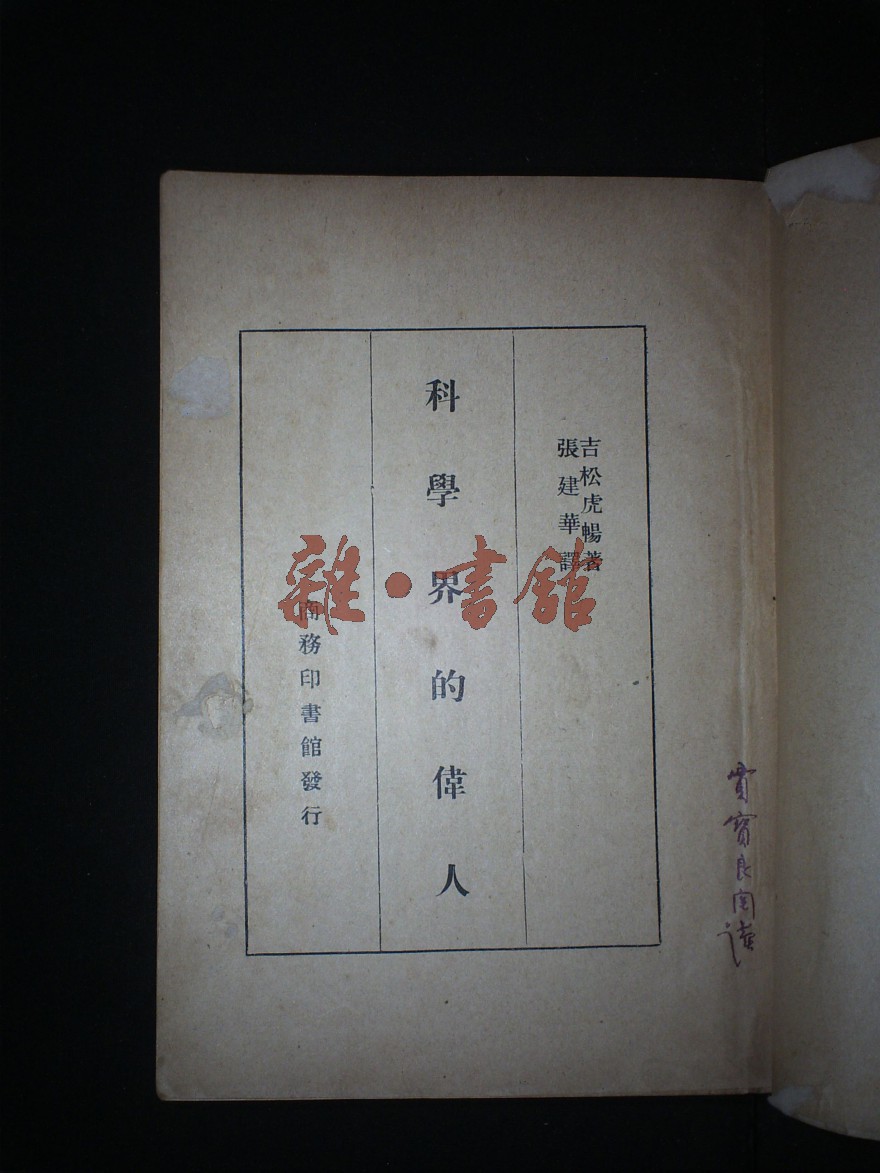 吉松虎暢著
張建華譯
科學界的偉人
商務印書館發行
雜·書館
賈寶良